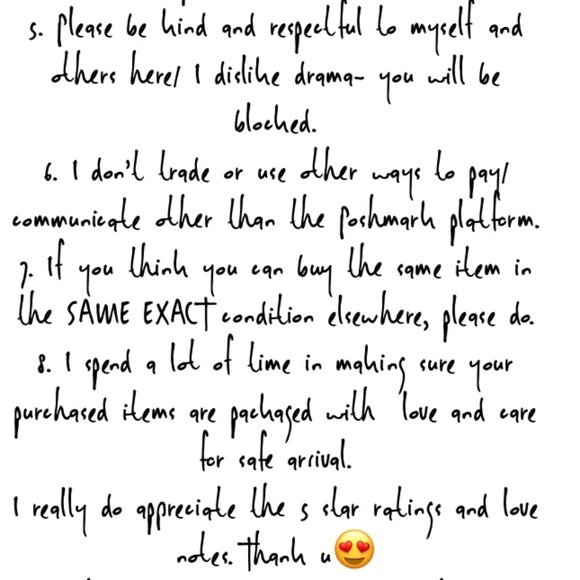 5. Please be kind and respectful to myself and
others here/ I dislike drama- you will be
blocked.
6. I don't trade or use other ways to pay/
communicate other than the Poshmark platform.
7. If you think you can buy the same item in
the SAME EXACT condition elsewhere, please do.
8. I spend a lot of time in making sure your
purchased items are packaged with love and care
for safe arrival.
I really do appreciate the 5 star ratings and love
notes. Thank u😍